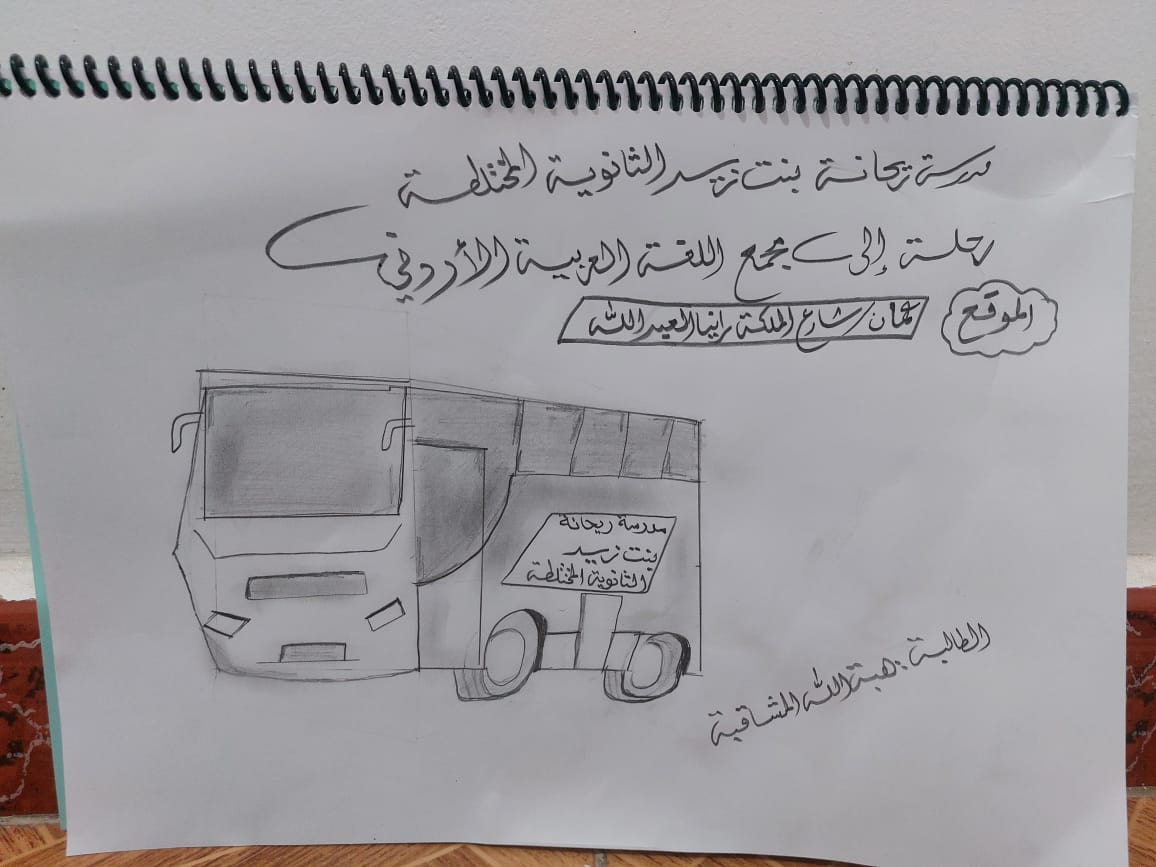 مدرسة ريحانة بنت زيد الثانوية المختلطة
رحلة إلى مجمع اللغة العربية الأردني
الموقع
عمان / شارع الملكة رانيا العبدالله
مدرسة ريحانة
بنت زيد
الثانوية المختلطة
الطالبة: هبة الله المشاقبة